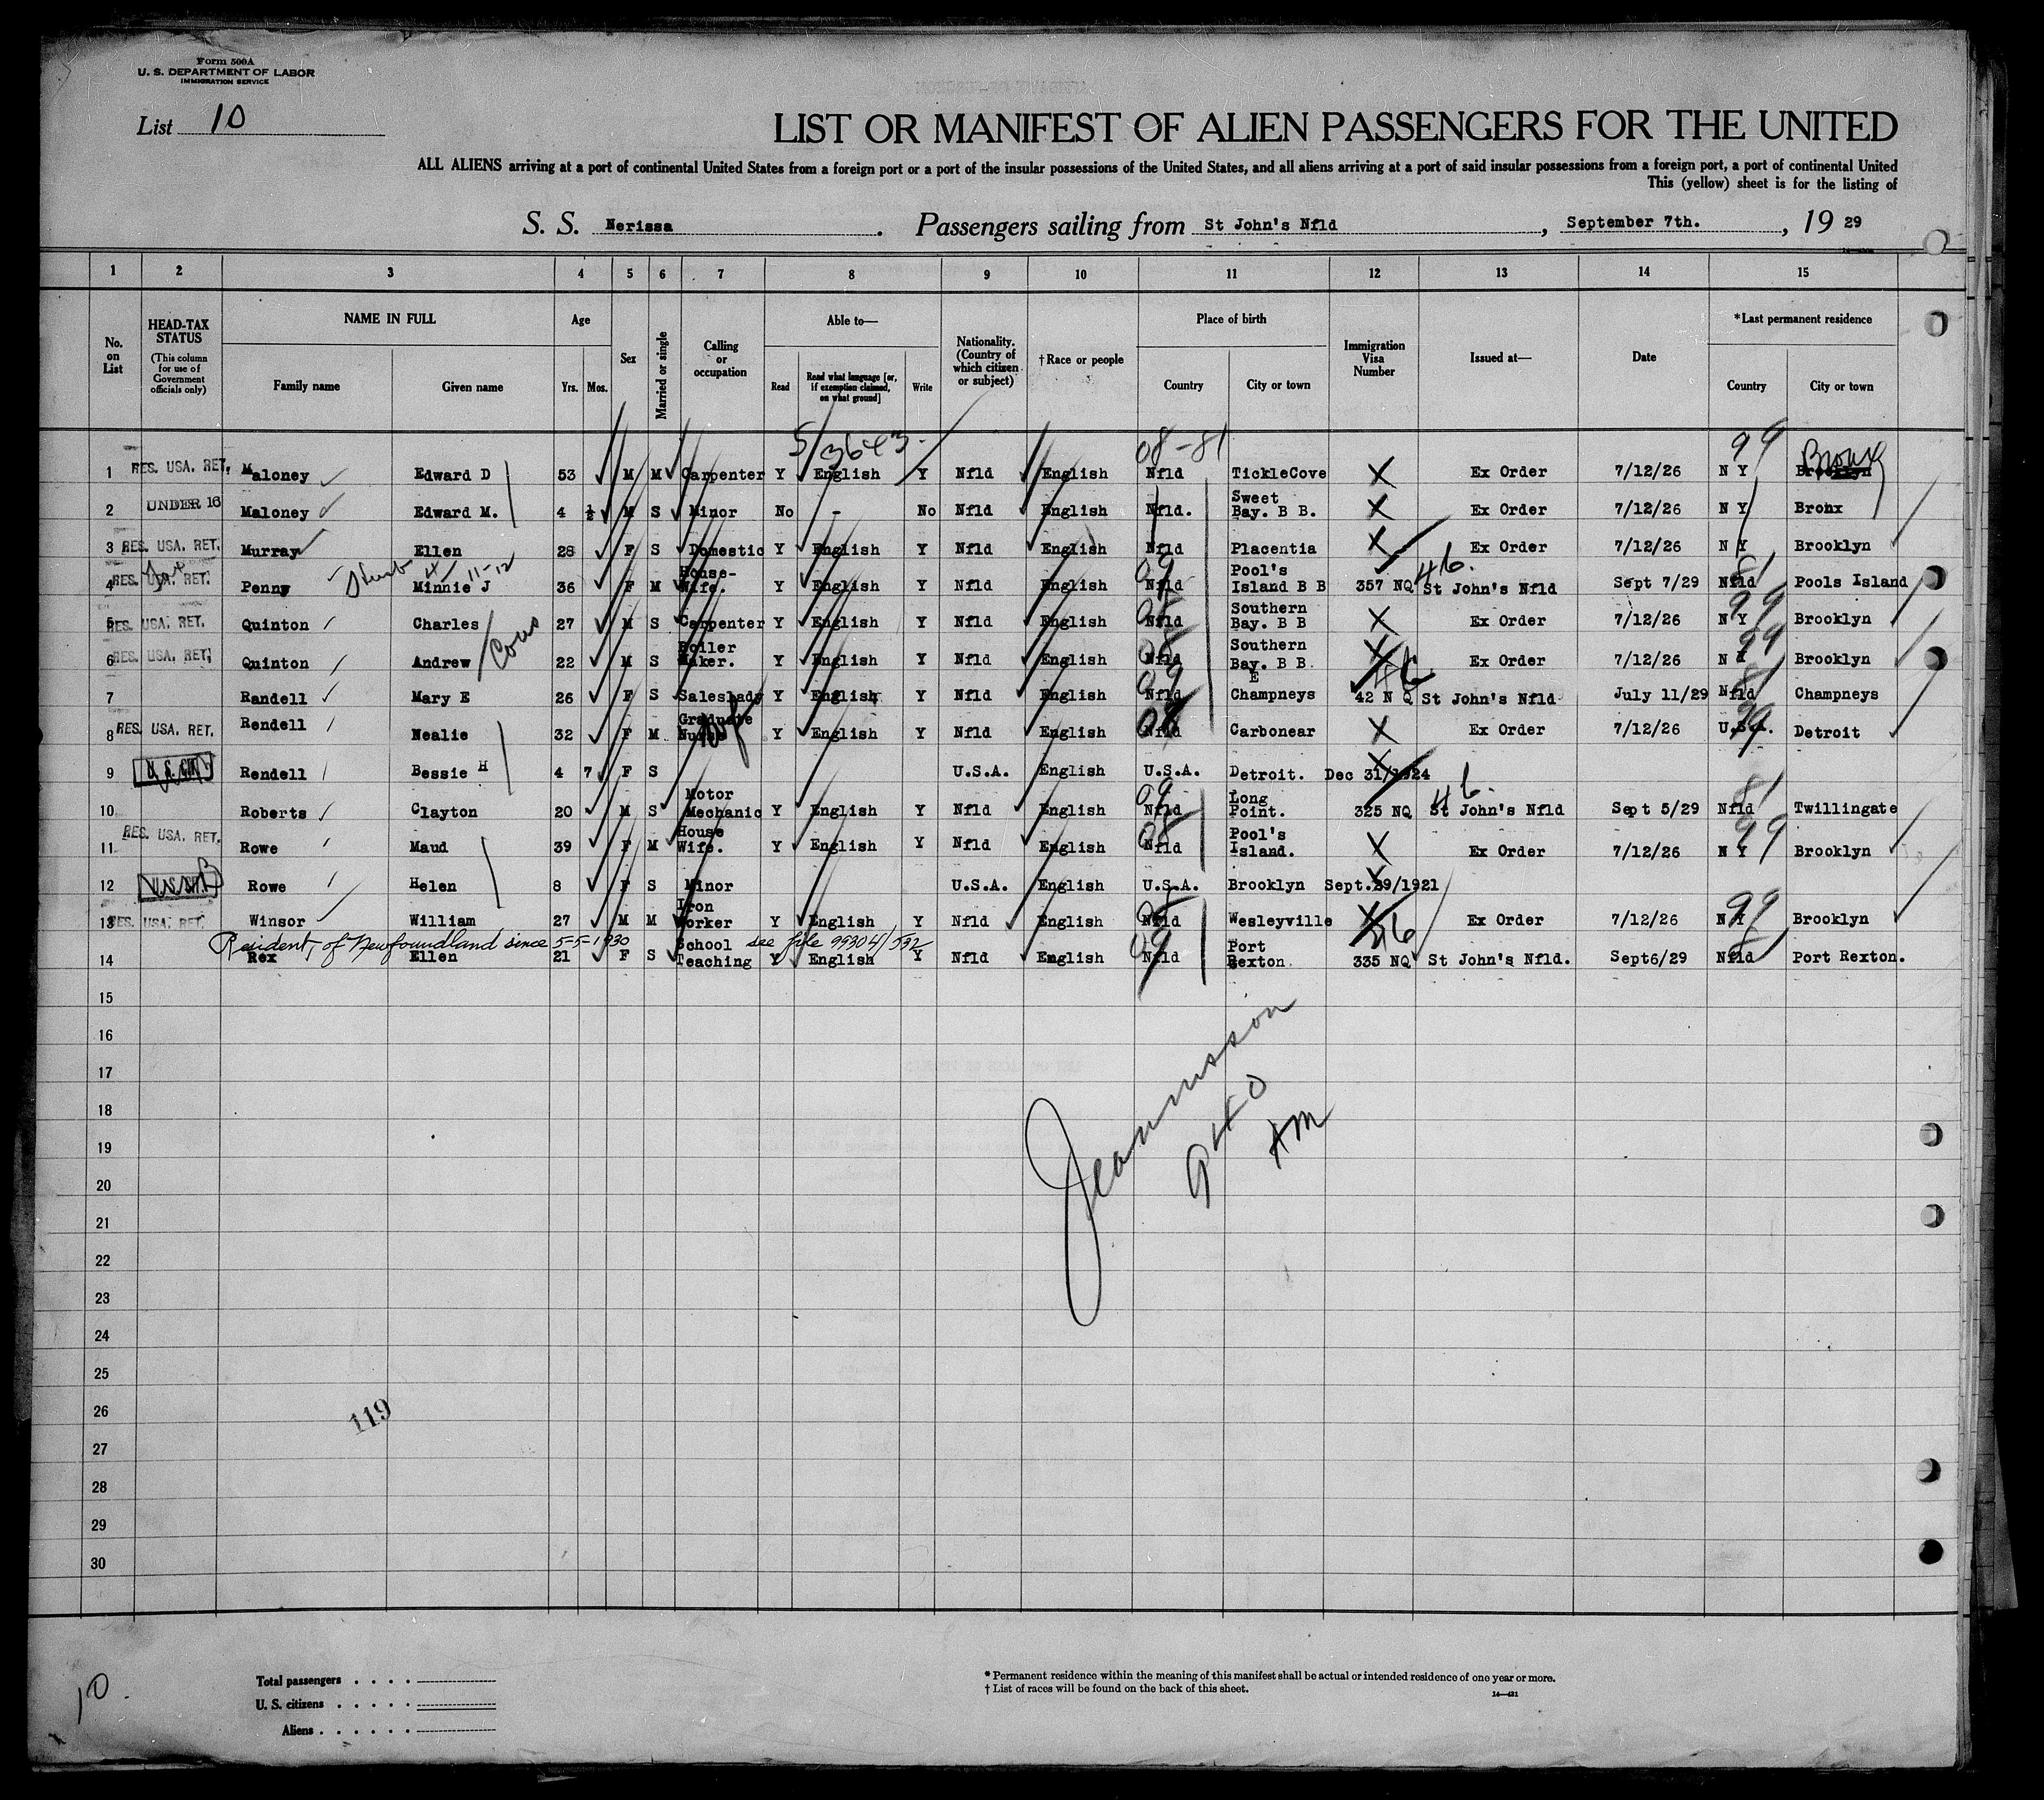 Form 500A
U. S. DEPARTMENT OF LABOR
IMMIGRATION SERVICE
List 10
LIST OR MANIFEST OF ALIEN PASSENGERS FOR THE UNITED
ALL ALIENS arriving at a port of continental United States from a foreign port or a port of the insular possessions of the United States, and all aliens arriving at a port of said insular possessions from a foreign port, a port of continental United
This (yellow) sheet is for the listing of
S. S. Nerissa. Passengers sailing from St John's Nfld, September 7th., 19 29
1 2 3 4 5 6 7 8 9 10 11 12 13 14 15
No. on List
HEAD-TAX STATUS (This column for use of Government officials only)
NAME IN FULL
Family name Given name
Age
Yrs. Mos.
Sex
Married or single
Calling or occupation
Able to—
Read Read what language [or, if exemption claimed, on what ground] Write
Nationality. (Country of which citizen or subject)
†Race or people
Place of birth
Country City or town
Immigration Visa Number
Issued at—
Date
*Last permanent residence
Country City or town
5/3643 08-81 99 Bronx
1 RES. USA. RET. Maloney Edward D 53 M M Carpenter Y English Y Nfld English Nfld TickleCove X Ex Order 7/12/26 N Y Brooklyn
2 UNDER 16 Maloney Edward M. 4 ½ M S Minor No - No Nfld English Nfld. Sweet Bay. B B. X Ex Order 7/12/26 N Y Bronx
3 RES. USA. RET. Murray Ellen 28 F S Domestic Y English Y Nfld English Nfld Placentia X Ex Order 7/12/26 N Y Brooklyn
11-12 46. 81
4 RES. USA. RET. Penny Minnie J 36 F M House-Wife. Y English Y Nfld English Nfld Pool's Island B B 357 NQ St John's Nfld Sept 7/29 Nfld Pools Island
5 RES. USA. RET. Quinton Charles 27 M S Carpenter Y English Y Nfld English Nfld Southern Bay. B B X Ex Order 7/12/26 N Y Brooklyn
Cous
6 RES. USA. RET. Quinton Andrew 22 M S Boiler Maker. Y English Y Nfld English Nfld Southern Bay. B B. X Ex Order 7/12/26 N Y Brooklyn
7 Randell Mary E 26 F S Saleslady Y English Y Nfld English Nfld Champneys E 42 N Q St John's Nfld July 11/29 Nfld Champneys
8 RES. USA. RET. Rendell Nealie 32 F M Graduate Nurse Y English Y Nfld English Nfld Carbonear X Ex Order 7/12/26 U.S.A. Detroit
9 Rendell Bessie H 4 7 F S U.S.A. English U.S.A. Detroit. Dec 31/1924
10 Roberts Clayton 20 M S Motor Mechanic Y English Y Nfld English Nfld Long Point. 325 NQ St John's Nfld Sept 5/29 Nfld Twillingate
11 RES. USA. RET. Rowe Maud 39 F M House Wife. Y English Y Nfld English Nfld Pool's Island. X Ex Order 7/12/26 N Y Brooklyn
12 Rowe Helen 8 F S Minor U.S.A. English U.S.A. Brooklyn Sept.29/1921
13 RES. USA. RET. Winsor William 27 M M Iron Worker Y English Y Nfld English Nfld Wesleyville X Ex Order 7/12/26 N Y Brooklyn
Resident of Newfoundland since 5-5-1930 see file 99304/532
14 Rex Ellen 21 F S School Teaching Y English Y Nfld English Nfld Port Rexton 335 NQ St John's Nfld. Sept6/29 Nfld Port Rexton.
15
16
17
18
19
20
21
22
23
24
25
26
119
27
28
29
30
10.
Total passengers
U. S. citizens
Aliens
* Permanent residence within the meaning of this manifest shall be actual or intended residence of one year or more.
† List of races will be found on the back of this sheet.
14—421